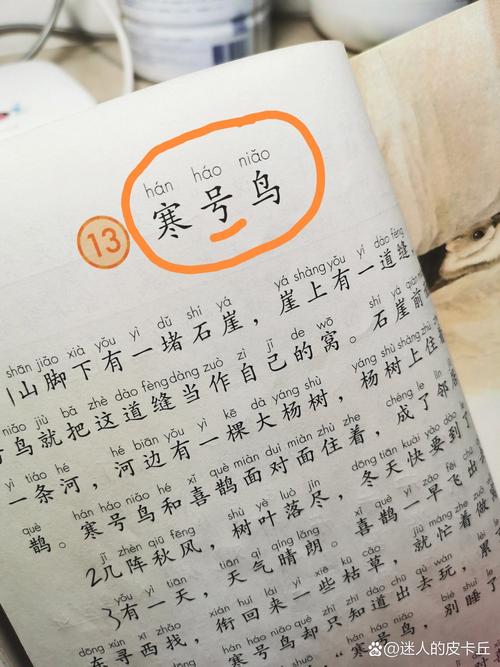 hán háo niǎo
13 寒号鸟
shān jiǎo xià yǒu yì dǔ shí yá yá shàng yǒu yí dào fèng
1山脚下有一堵石崖，崖上有一道缝
niǎo jiù bǎ zhè dào fèng dàng zuò zì jǐ de wō shí yá qián
鸟就把这道缝当作自己的窝。石崖前
yì tiáo hé hé biān yǒu yì kē dà yáng shù yáng shù shàng zhù
一条河，河边有一棵大杨树，杨树上住
què hán háo niǎo hé xǐ què miàn duì miàn zhù zhe chéng le lín
鹊。寒号鸟和喜鹊面对面住着，成了邻
jǐ zhèn qiū fēng shù yè luò jìn dōng tiān kuài yào dào
2几阵秋风，树叶落尽，冬天快要到了
yǒu yì tiān tiān qì qíng lǎng xǐ què yì zǎo fēi chū
3有一天，天气晴朗。喜鹊一早飞出
dōng xún xī zhǎo xián huí lái yì xiē kū cǎo jiù máng zhe zuò
东寻西找，衔回来一些枯草，就忙着做
寒号鸟却只知道出去玩，累
“寒号鸟，别睡了
@迷人的皮卡丘